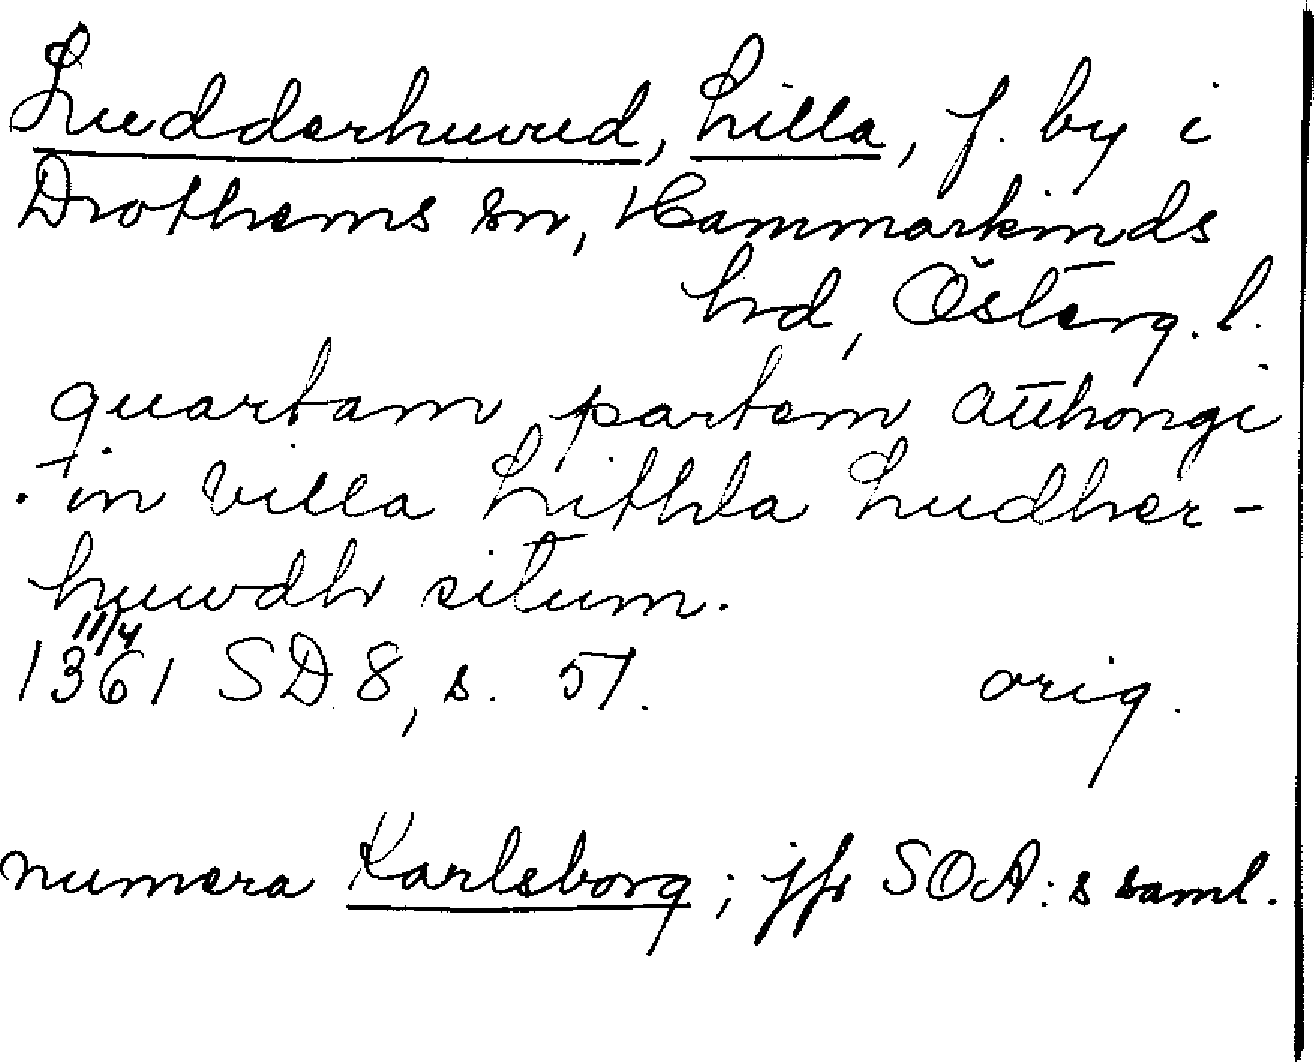 Ludderhuvud, Lilla, f. by i
Drothems sn, Hammarkinds
hrd, Österg. l.
quartam partem atthongi
in villa Lithla Ludher-
huwdh situm.
11/4
1361 SD 8, s. 51. orig.
numera Karlsborg; jfr SOA:s saml.